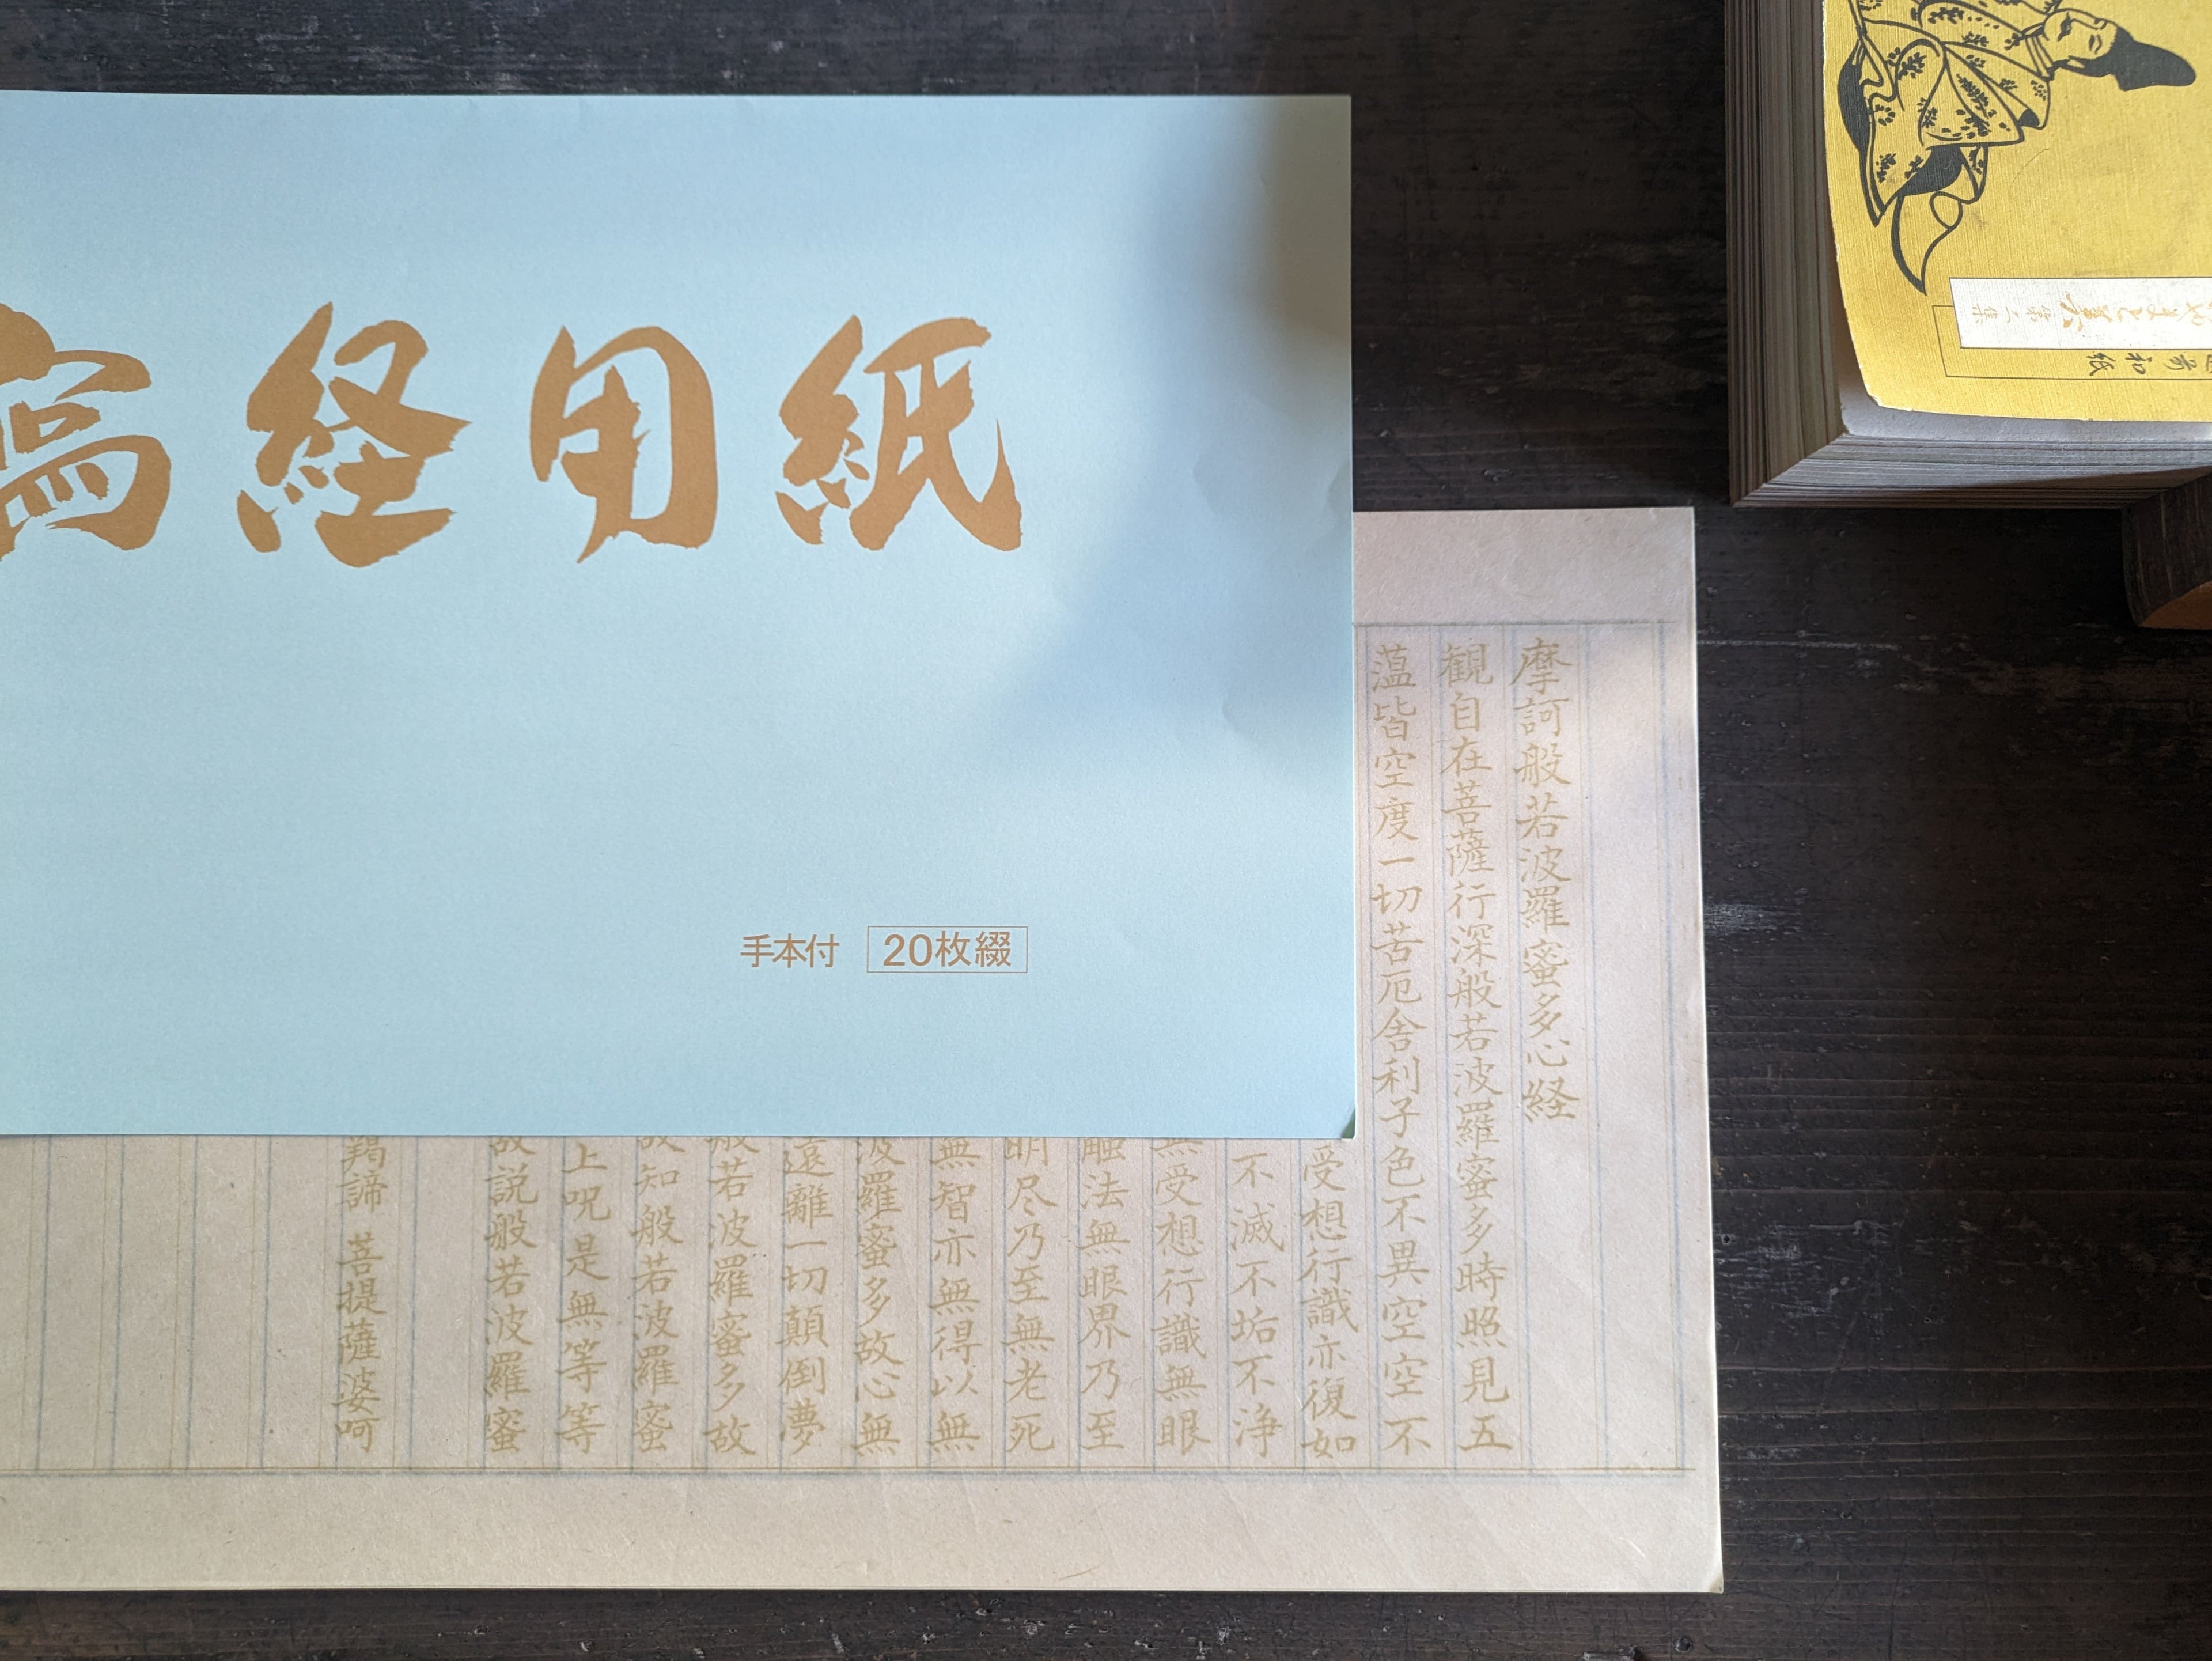 写経用紙
手本付 20枚綴
摩訶般若波羅蜜多心経
観自在菩薩行深般若波羅蜜多時照見五
蕰皆空度一切苦厄舎利子色不異空空不
受想行識亦復如
不滅不垢不浄
無受想行識無眼
触法無眼界乃至
明尽乃至無老死
無智亦無得以無
波羅蜜多故心無
遠離一切顛倒夢
般若波羅蜜多故
故知般若波羅蜜
上呪是無等等
故説般若波羅蜜
羯諦 菩提薩婆呵
第二集
和紙